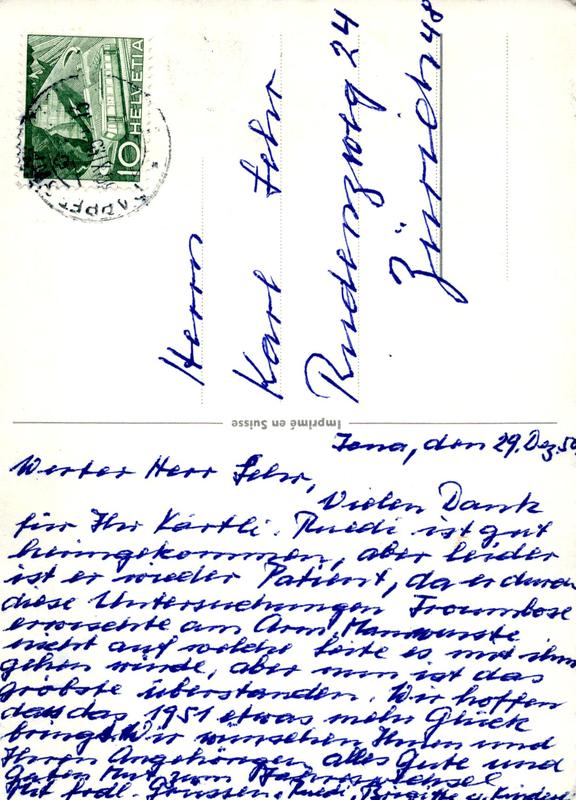 HELVETIA
10
KAPPEL
Herrn
Karl Fehr
Rudenzweg 24
Zürich 48
Imprimé en Suisse
Iona, den 29. Dez. 50
Werter Herr Fehr,
Vielen Dank
für Ihr Kärtli. Ruedi ist gut
heimgekommen, aber leider
ist er wieder Patient, da er durch
diese Untersuchungen Troumbose
erwischte am Arm. Man wusste
nicht auf welche Seite es mit ihm
gehen würde, aber nun ist das
gröbste überstanden. Wir hoffen
dass das 1951 etwas mehr Glück
bringt. Wir wünschen Ihnen und
Ihren Angehörigen alles Gute und
guten Mut zum Jahreswechsel
Mit frdl. Grüssen, Ruedi, Brigitte u. Kinder